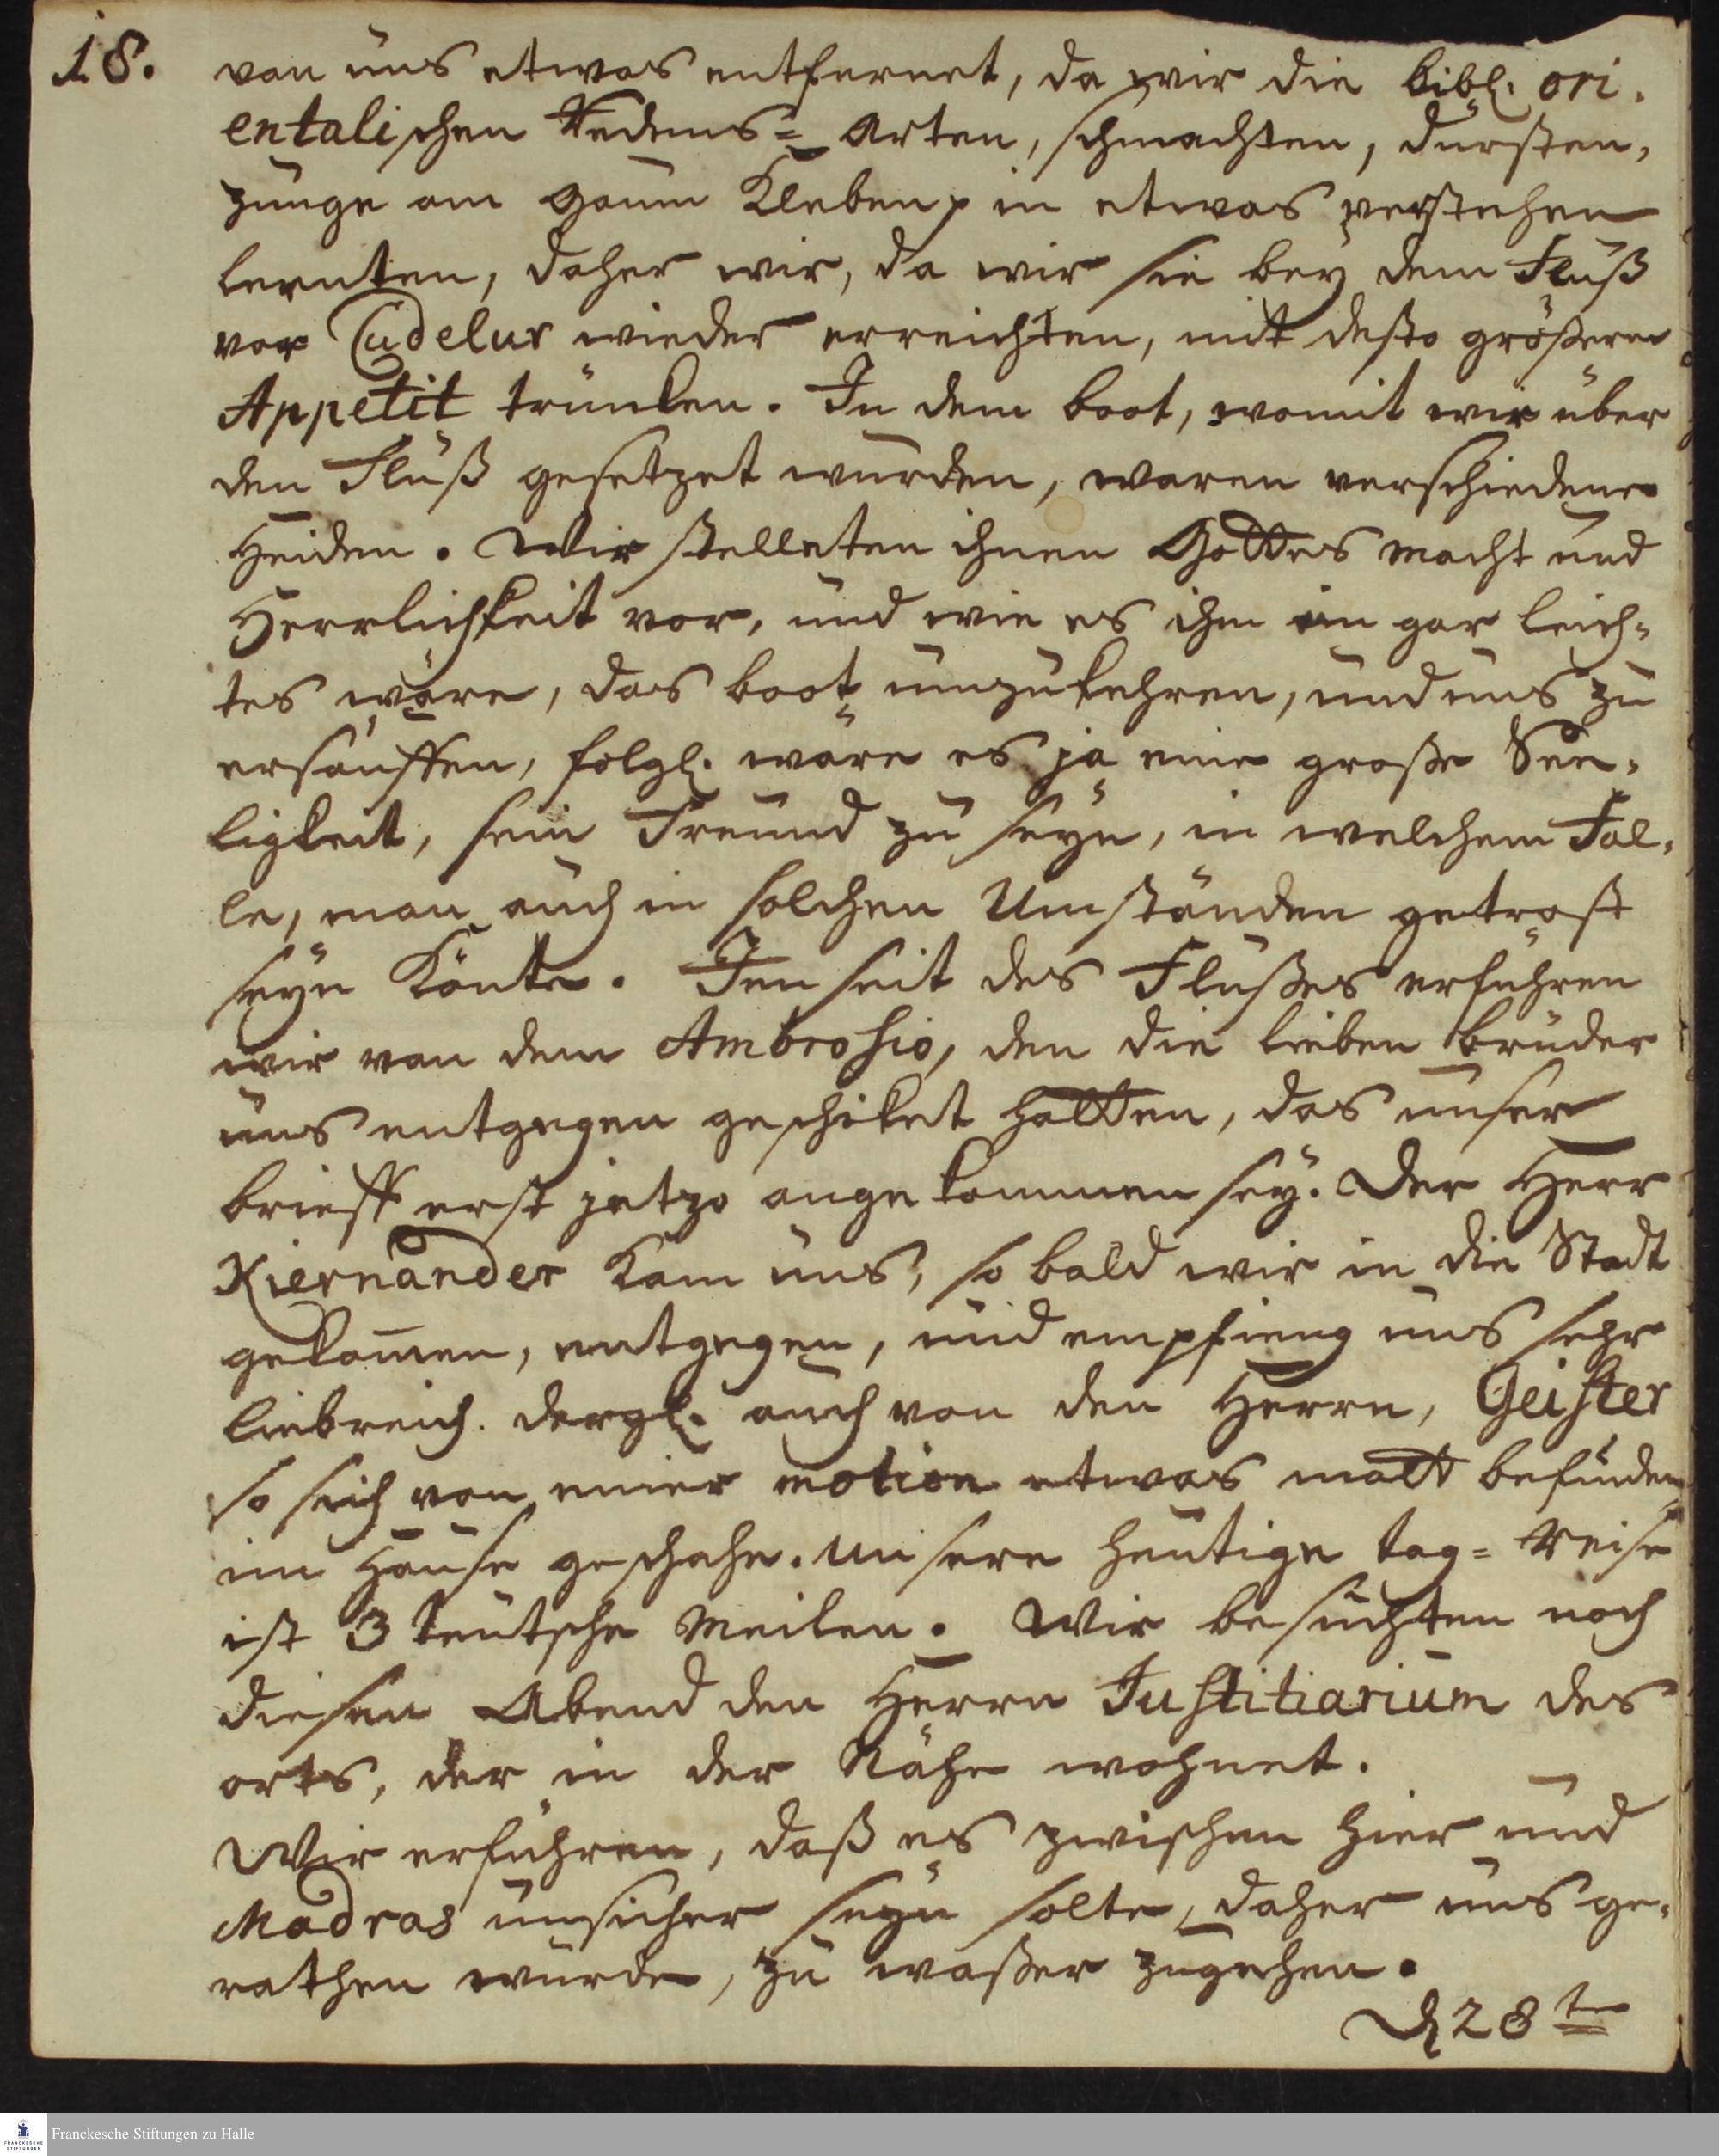 18.
von uns etwas entfernet, da wir die bibl. ori,
entalischen Redens= Arten, schmachten, dursten,
zunge am Gaum Kleben p in etwas verstehen
lernten, daher wir, da wir sie bey dem Fluß
vor Cudelur wieder erreichten, mit desto größeren
Appetit truncken. In dem boot, womit wir über
den Fluß gesetzet wurden, waren verschiedene
Heiden. Wir stelleten ihnen Gottes macht und
Herrlichkeit vor, und wie es ihm ein gar leich=
tes wäre, das boot umzukehren, und uns zu
ersäuffen, folgl. wäre es ja eine große See,
ligkeit, sein Freund zu seyn, in welchem Fal,
le, man auch in solchen Umständen getrost
seyn Könte. Jenseit des Flußes erfuhren
wir von dem Ambrosio, den die lieben brüder
uns entgegen geschiket hatten, das unser
brieff erst jetzo angekommen sey. Der Herr
Kiernander Kam uns, so bald wir in die Stadt
gekom̄en, entgegen, und empfieng uns sehr
liebreich. dergl. auch von den Herrn, Geister
so sich von einer motion etwas matt befunden
im Hause geschahe. Unsere heutige tag= Reise
ist 3 teutsche Meilen. Wir besuchten noch
diesen Abend den Herrn Justitiarium des
orts, der in der Nähe wohnet.
Wir erfuhren, daß es zwischen hier und
Madras unsicher seyn solte, daher uns ge,
rathen wurde, zu waßer zugehen.
D 28t
Franckesche Stiftungen zu Halle